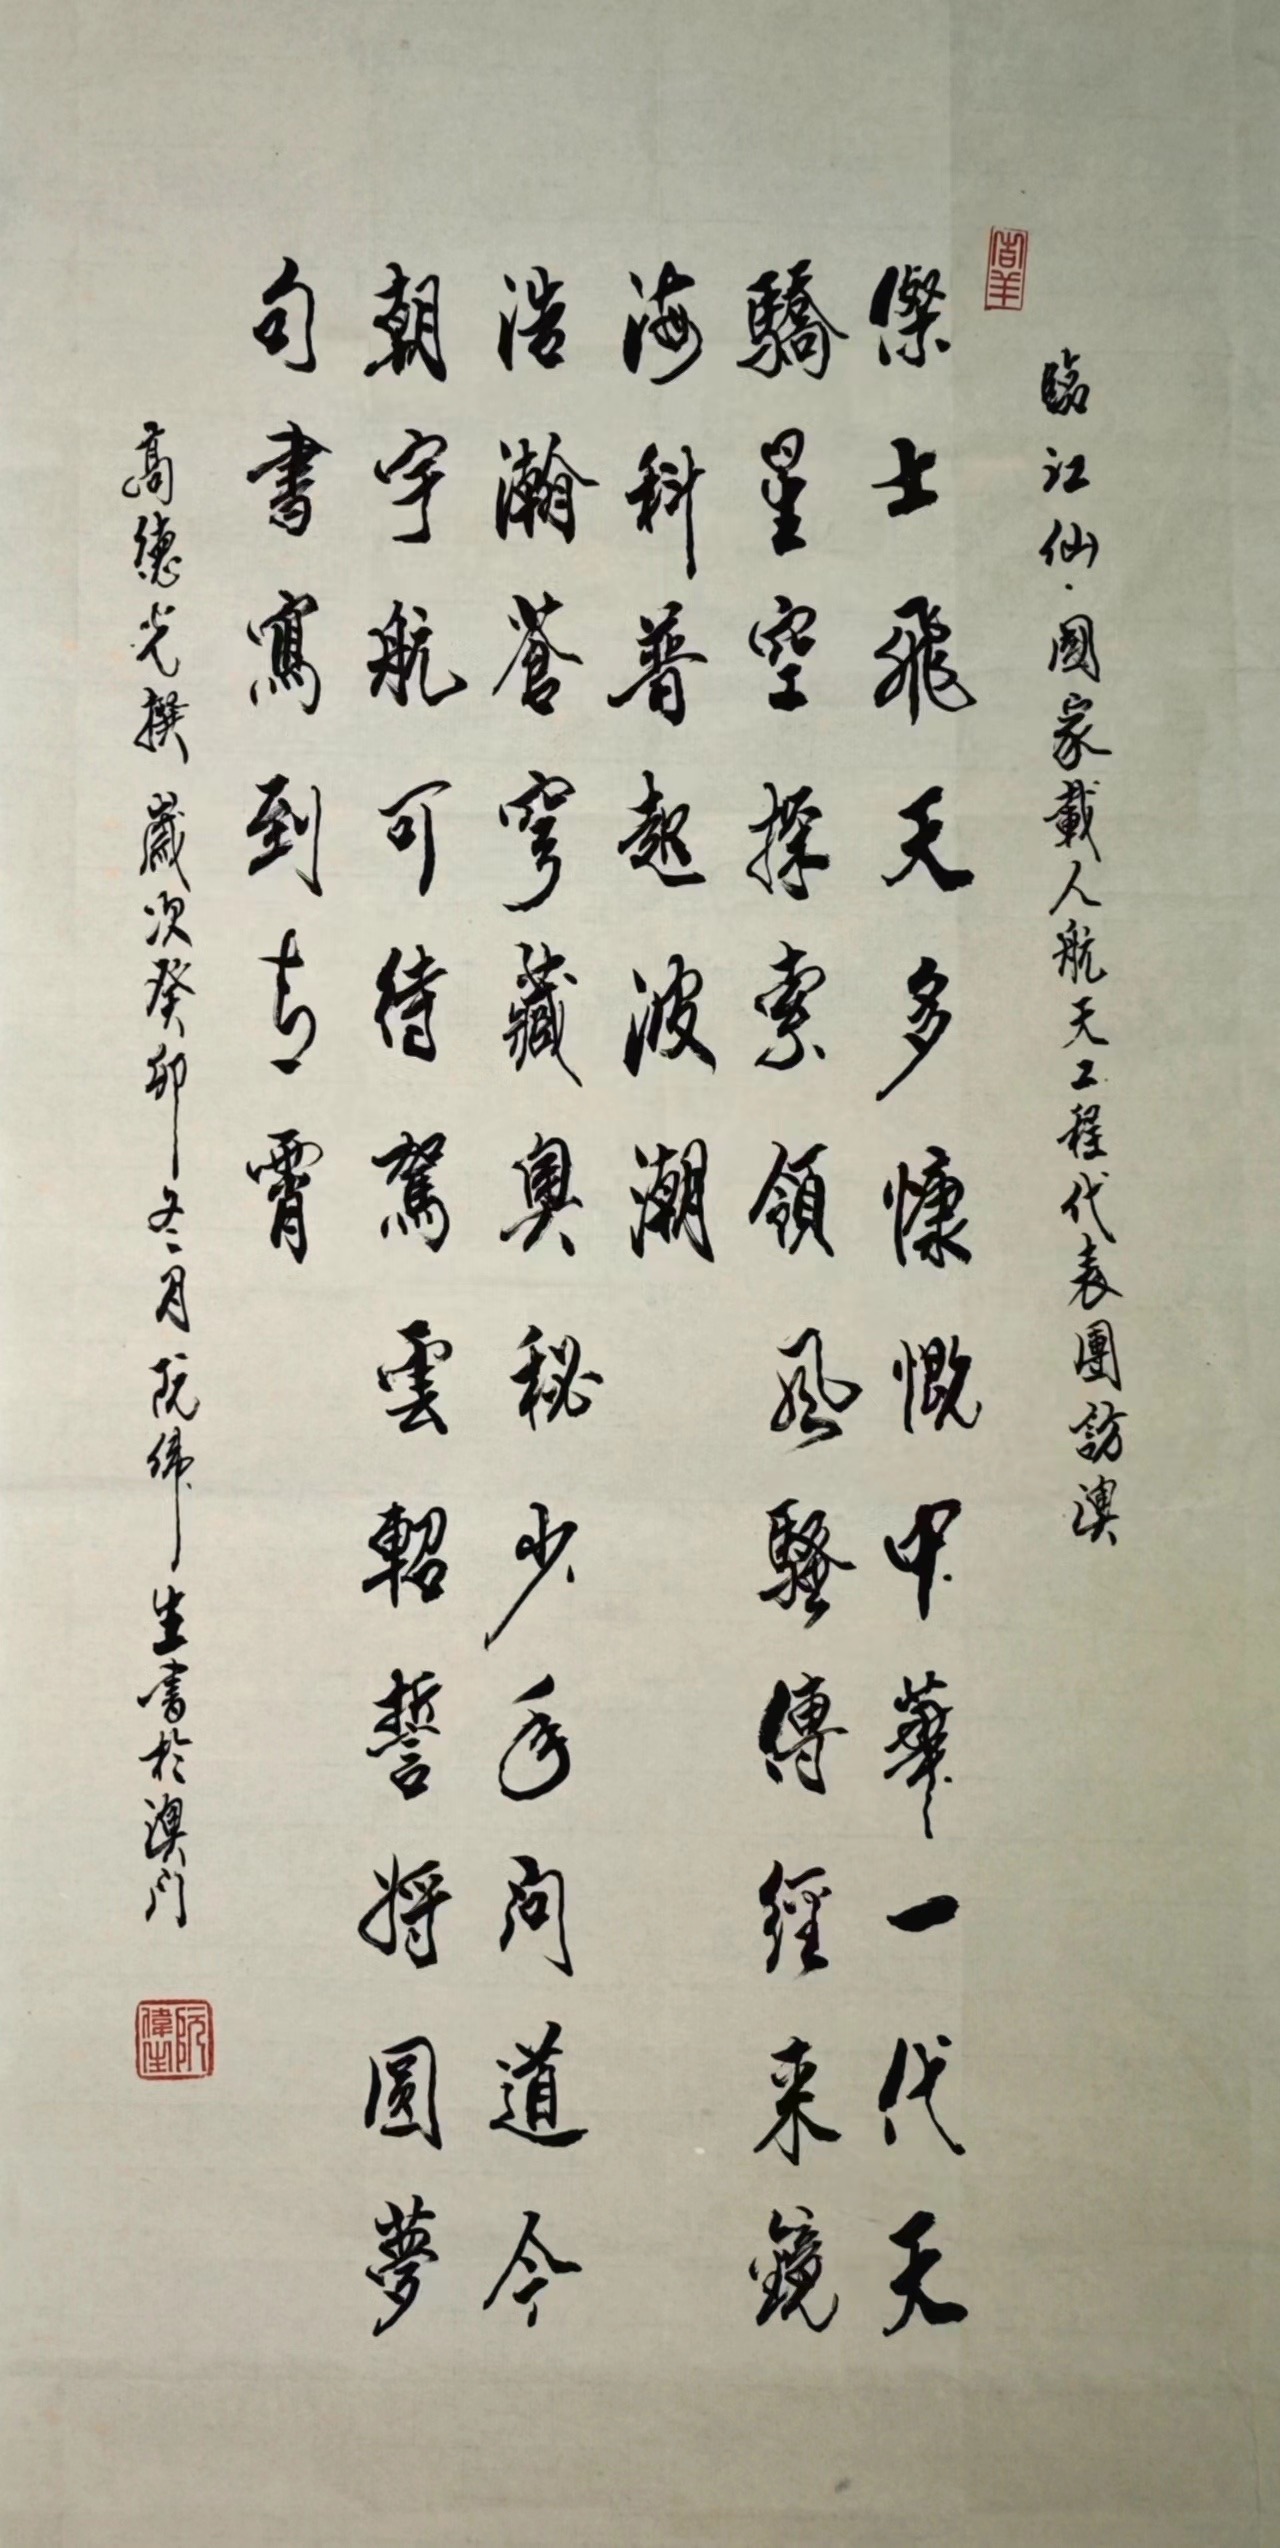 臨江仙·國家載人航天工程代表團訪澳
傑士飛天多慷慨中華一代天
驕星空探索領風騷傳經來鏡
海科普起波潮
浩瀚蒼穹藏奧秘少年問道今
朝宇航可待駕雲軺誓將圓夢
句書寫到青霄
高德光撰歲次癸卯冬月阮偉生書於澳門
吉羊
阮偉生